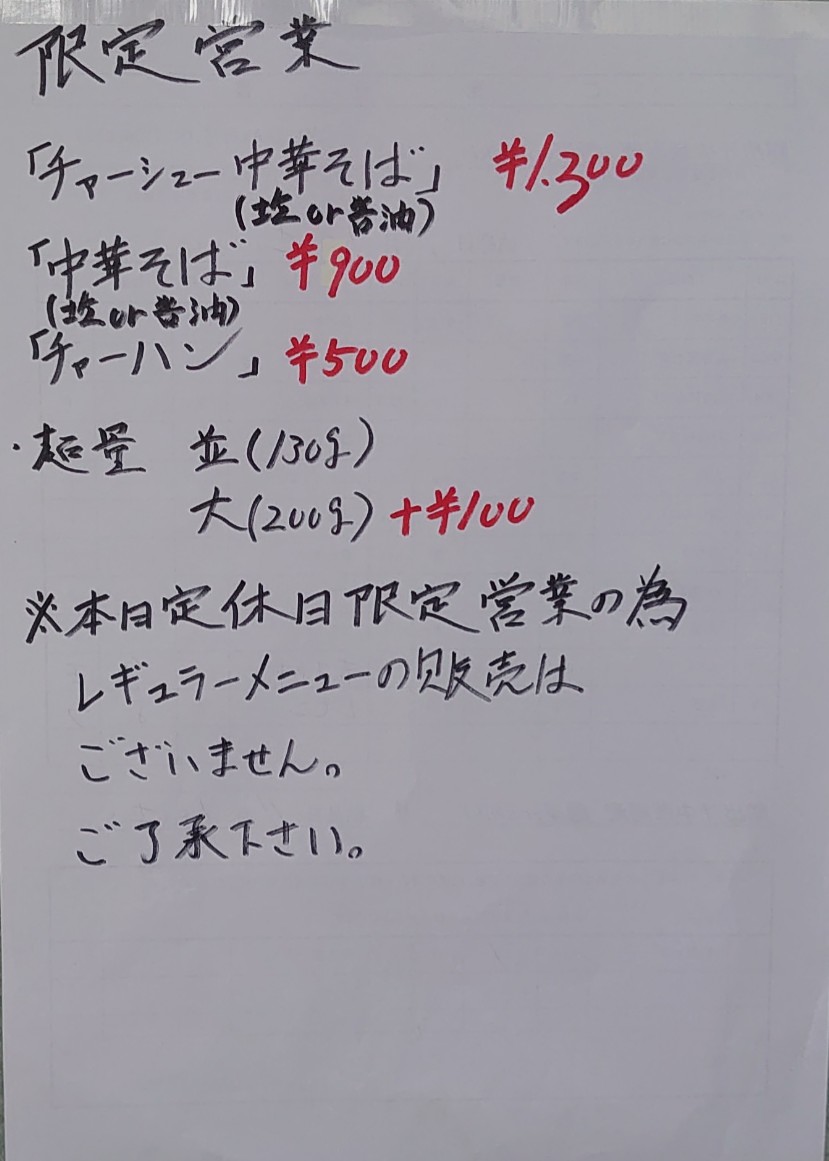 限定営業
「チャーシュー中華そば」 ¥1.300
(塩or醤油)
「中華そば」 ¥900
(塩or醤油)
「チャーハン」 ¥500
・麺量 並(130g)
大(200g) +¥100
※本日定休日限定営業の為
レギュラーメニューの販売は
ございません。
ご了承下さい。